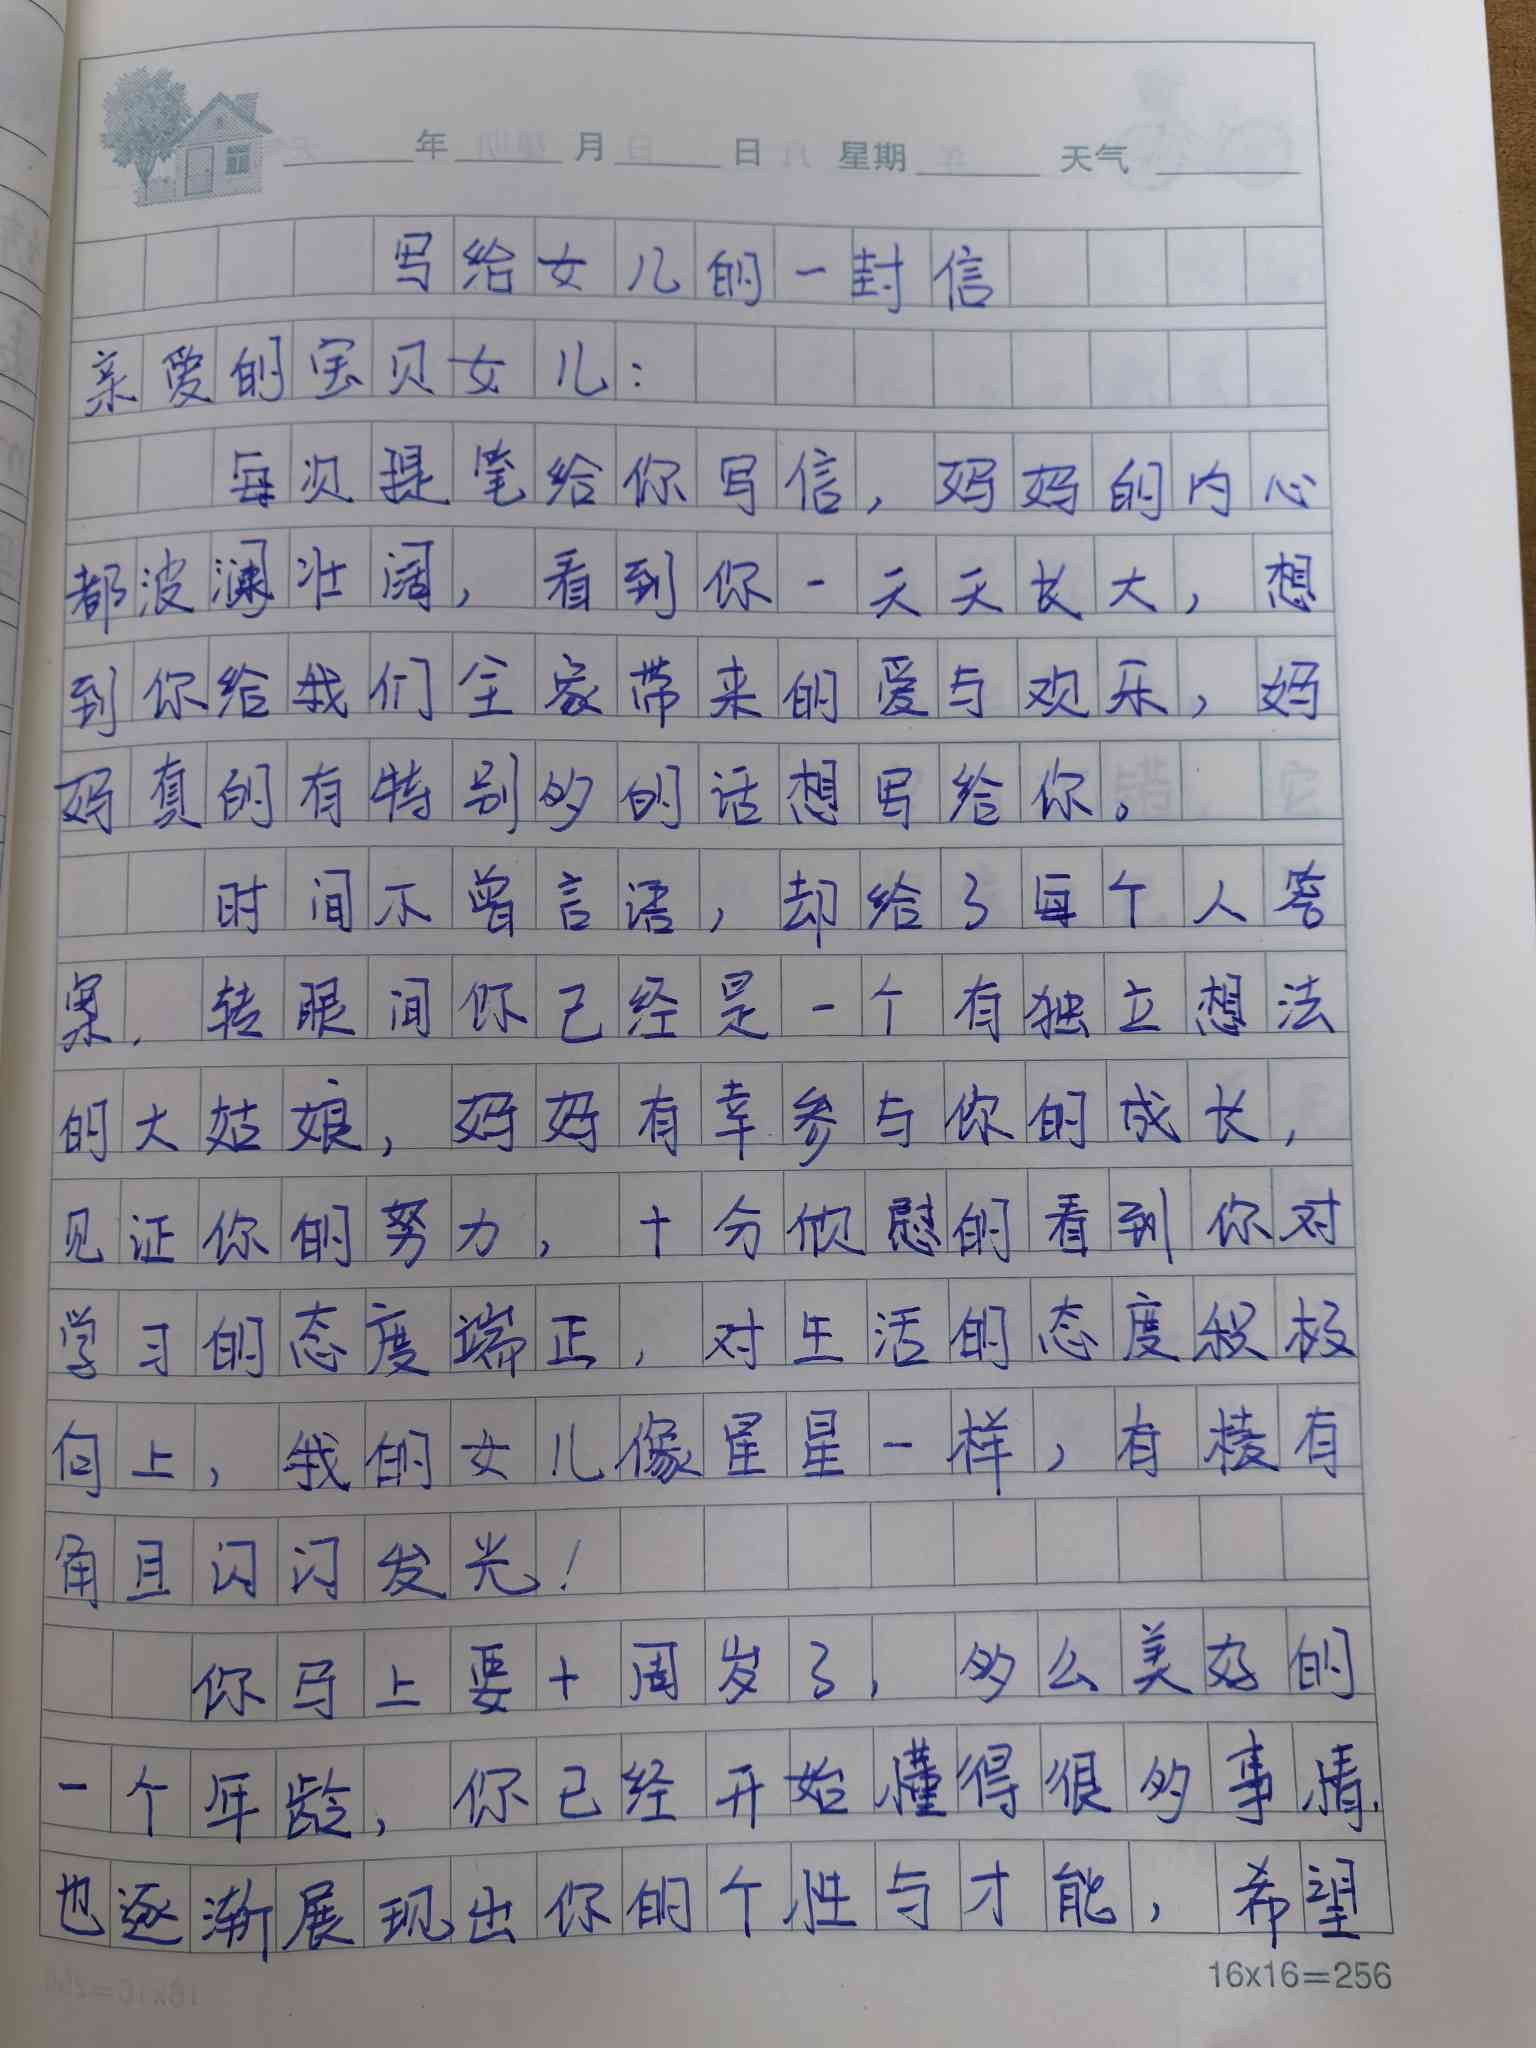 年 月 日 星期 天气
写给女儿的一封信
亲爱的宝贝女儿：
每次提笔给你写信，妈妈的内心
都波澜壮阔，看到你一天天长大，想
到你给我们全家带来的爱与欢乐，妈
妈真的有特别多的话想写给你。
时间不曾言语，却给了每个人答
案，转眼间你已经是一个有独立想法
的大姑娘，妈妈有幸参与你的成长，
见证你的努力，十分欣慰的看到你对
学习的态度端正，对生活的态度积极
向上，我的女儿像星星一样，有棱有
角且闪闪发光！
你马上要十周岁了，多么美好的
一个年龄，你已经开始懂得很多事情，
也逐渐展现出你的个性与才能，希望
16x16=256